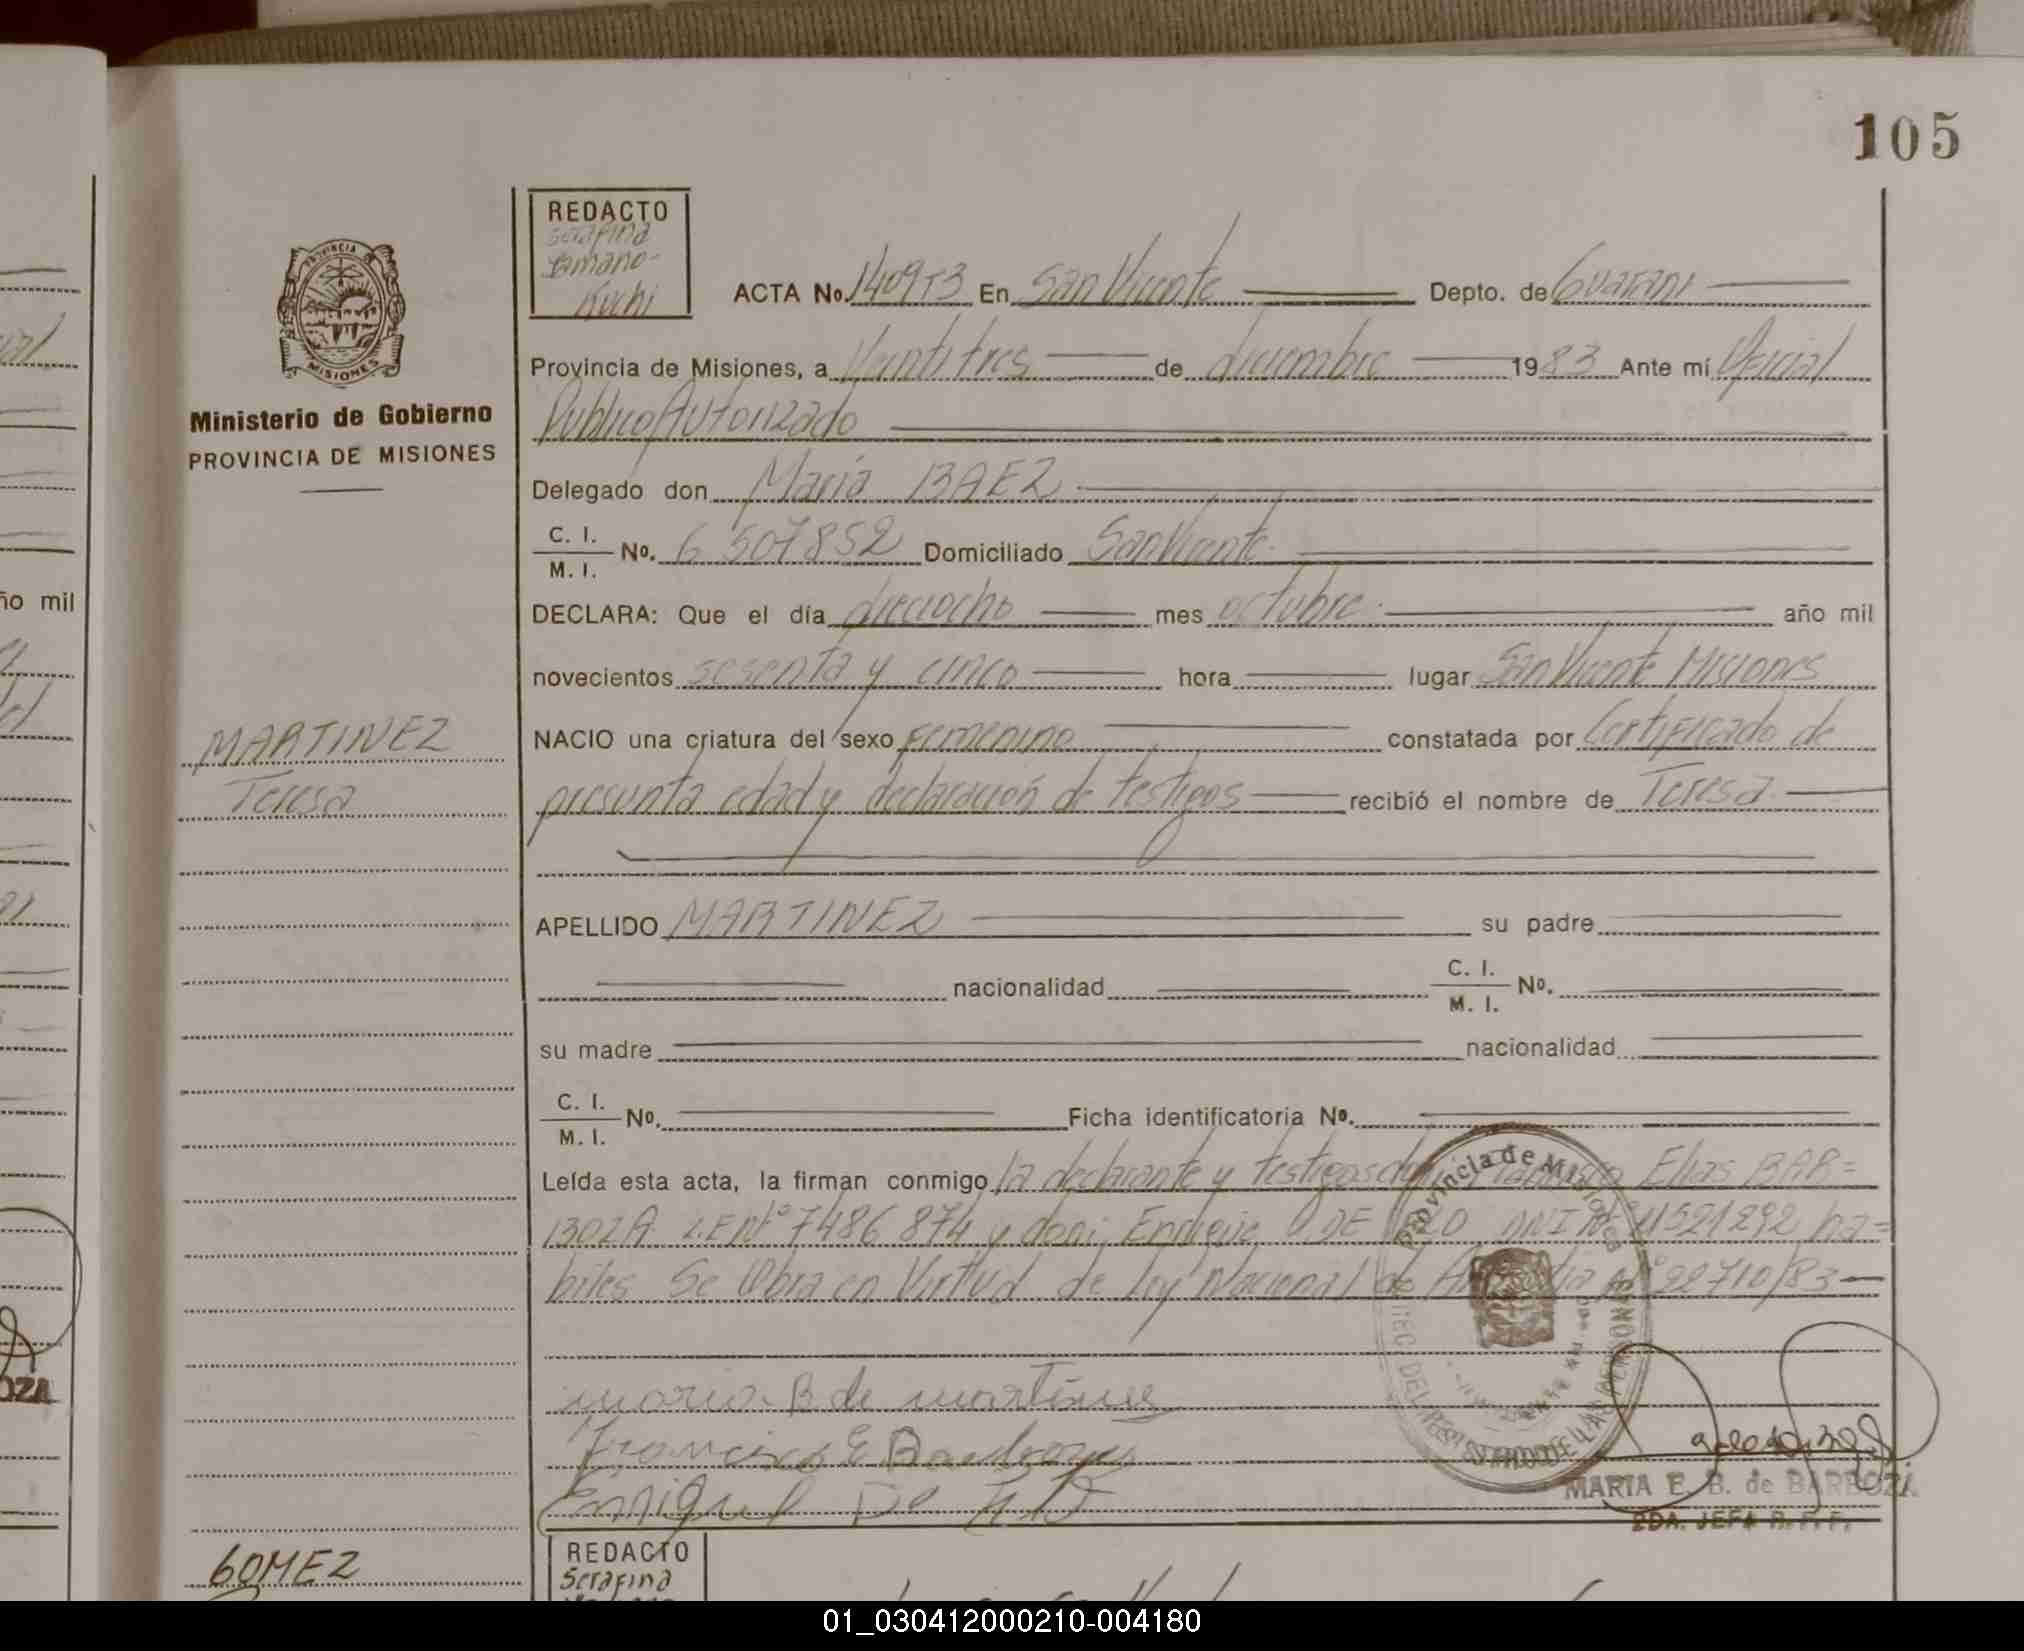 105
REDACTO
Serafina
Kuchi
PROVINCIA
MISIONES
Ministerio de Gobierno
PROVINCIA DE MISIONES
ACTA No. 1409T3 En San Vicente Depto. de Guarani
Provincia de Misiones, a Veintitres de diciembre 1983 Ante mí Oficial
Publico Autorizado
Delegado don María BAEZ
C. I.
M. I. No. 6 507852 Domiciliado San Vicente.
DECLARA: Que el día dieciocho mes octubre. año mil
novecientos sesenta y cinco hora lugar San Vicente Misiones
MARTINEZ
Teresa
NACIO una criatura del sexo femenino constatada por Certificado de
presunta edad y declaración de testigos recibió el nombre de Teresa
APELLIDO MARTINEZ su padre
nacionalidad C. I.
M. I. No.
su madre nacionalidad
C. I.
M. I. No. Ficha identificatoria No.
Leída esta acta, la firman conmigo la declarante y testigos Elias BAR=
BOZA L.E Nº 7486 874 y don: Enrique DE DNI Nº 11521292 ha=
biles. Se labra en Virtud de ley Nacional de Nº 22710/83
Provincia de Misiones
maria B de martines
Francisco E Barboza
Enrique De
MARIA E. B. de BARBOZA
2DA. JEFA R. P. P.
GOMEZ
REDACTO
Serafina
ño mil
OZA
01_030412000210-004180